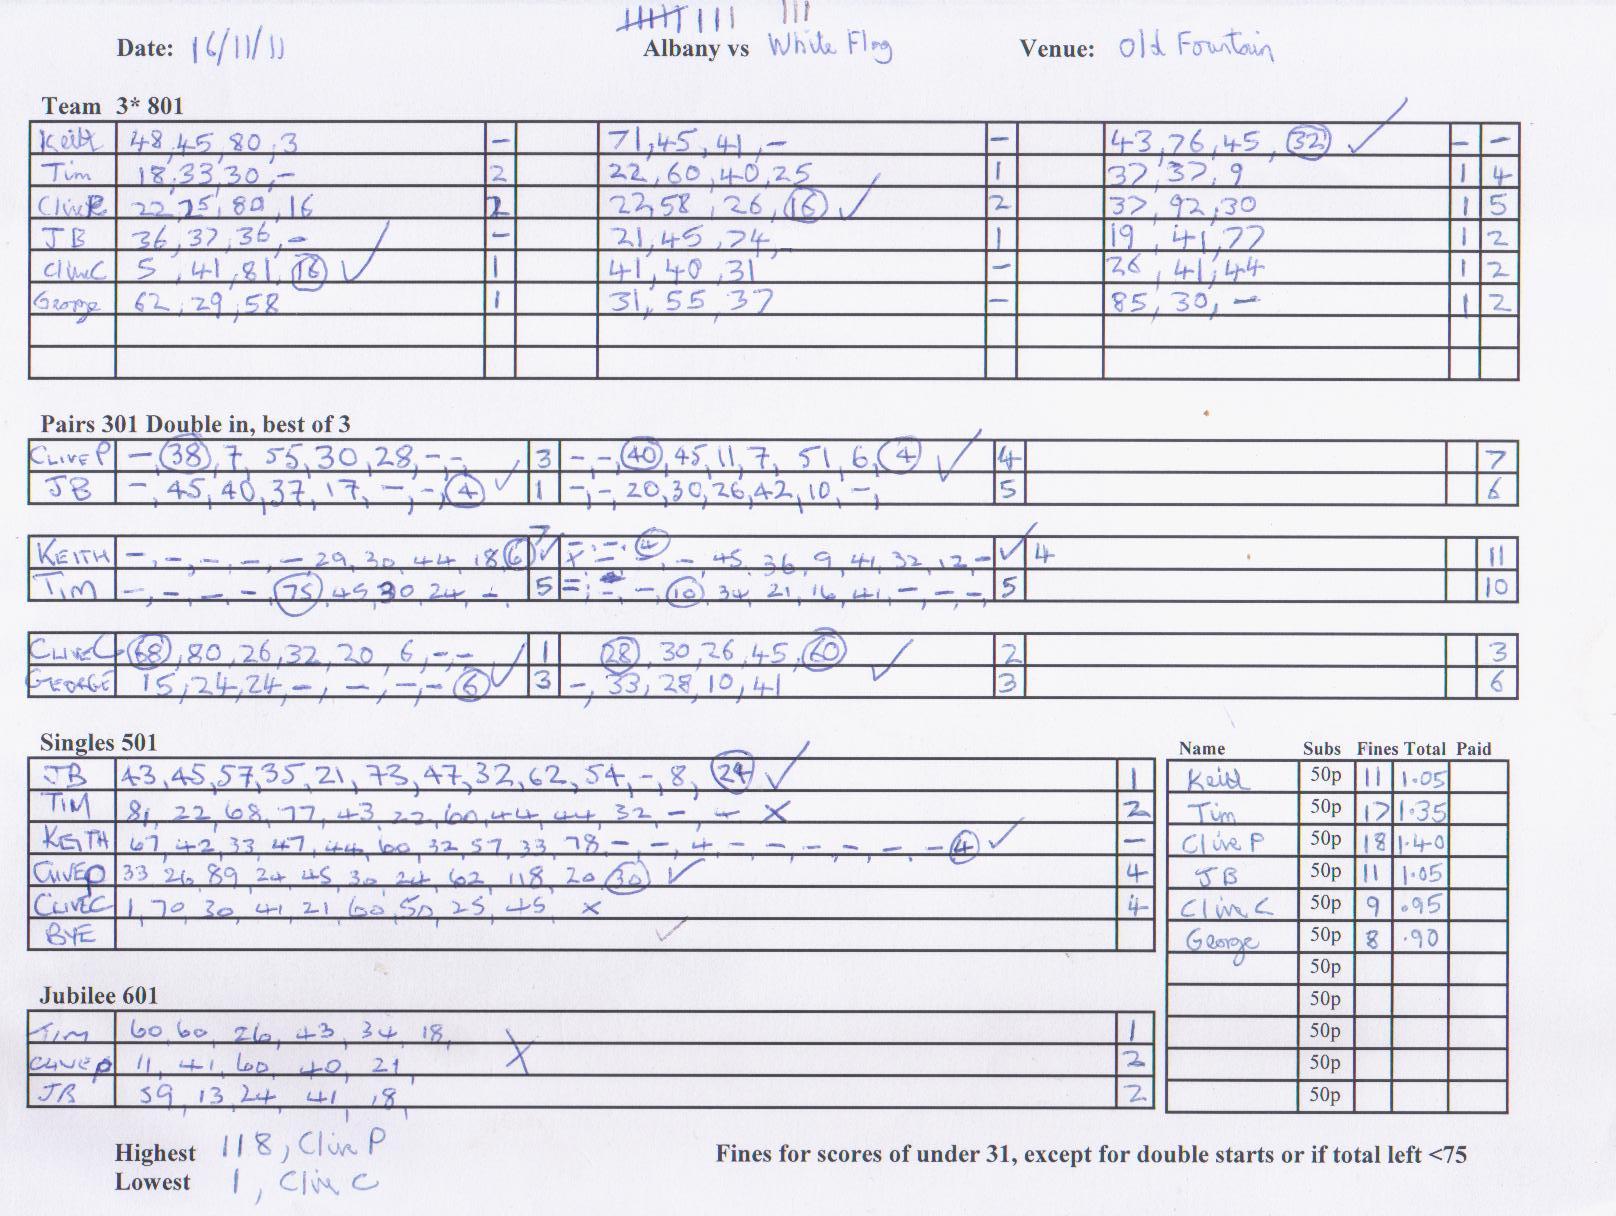 Date: 16/11/11 Albany vs White Flag Venue: Old Fountain
Team 3* 801
Keith 48, 45, 80, 3 - 71, 45, 41, - - 43, 76, 45, 32 ✓ - -
Tim 18, 33, 30, - 2 22, 60, 40, 25 1 37, 37, 9 1 4
Clive P 22, 25, 80, 16 2 22, 58, 26, 16 ✓ 2 37, 92, 30 1 5
JB 36, 37, 36, - - 21, 45, 74, - 1 19, 41, 77 1 2
Clive C 5, 41, 81, 16 ✓ 1 41, 40, 31 - 26, 41, 44 1 2
George 62, 29, 58 1 31, 55, 37 - 85, 30, - 1 2
Pairs 301 Double in, best of 3
CLIVE P -, 38, 7, 55, 30, 28, -, - 3 -, -, 40, 45, 11, 7, 51, 6, 4 ✓ 4 7
JB -, 45, 40, 37, 17, -, -, 4 ✓ 1 -, -, 20, 30, 26, 42, 10, -, 5 6
KEITH -, -, -, -, -, 29, 30, 44, 18, 6 ✓ 7 -, -, 4, -, 45, 36, 9, 41, 32, 12, - ✓ 4 11
TIM -, -, -, -, 75, 45, 30, 24, -, 5 -, -, -, 10, 34, 21, 16, 41, -, -, -, 5 10
CLIVE C 68, 80, 26, 32, 20, 6, -, - 1 28, 30, 26, 45, 60 ✓ 2 3
GEORGE 15, 24, 24, -, -, -, -, 6 ✓ 3 -, 33, 28, 10, 41 3 6
Singles 501
JB 43, 45, 57, 35, 21, 73, 47, 32, 62, 54, -, 8, 24 ✓ 1
TIM 81, 22, 68, 77, 43, 22, 60, 44, 44, 32, -, - X 2
KEITH 67, 42, 33, 47, 44, 60, 32, 57, 33, 78, -, -, 4, -, -, -, -, -, -, 4 ✓ -
CLIVE P 33, 26, 89, 24, 45, 30, 24, 62, 118, 20, 30 ✓ 4
CLIVE C 1, 70, 30, 41, 21, 60, 50, 25, 45, X 4
BYE ✓
Name Subs Fines Total Paid
Keith 50p 11 1.05
Tim 50p 17 1.35
Clive P 50p 18 1.40
JB 50p 11 1.05
Clive C 50p 9 .95
George 50p 8 .90
50p
50p
50p
50p
50p
Jubilee 601
TIM 60, 60, 26, 43, 34, 18, X 1
CLIVE P 11, 41, 60, 40, 21, 2
JB 59, 13, 24, 41, 18, 2
Highest 118, Clive P
Lowest 1, Clive C
Fines for scores of under 31, except for double starts or if total left <75